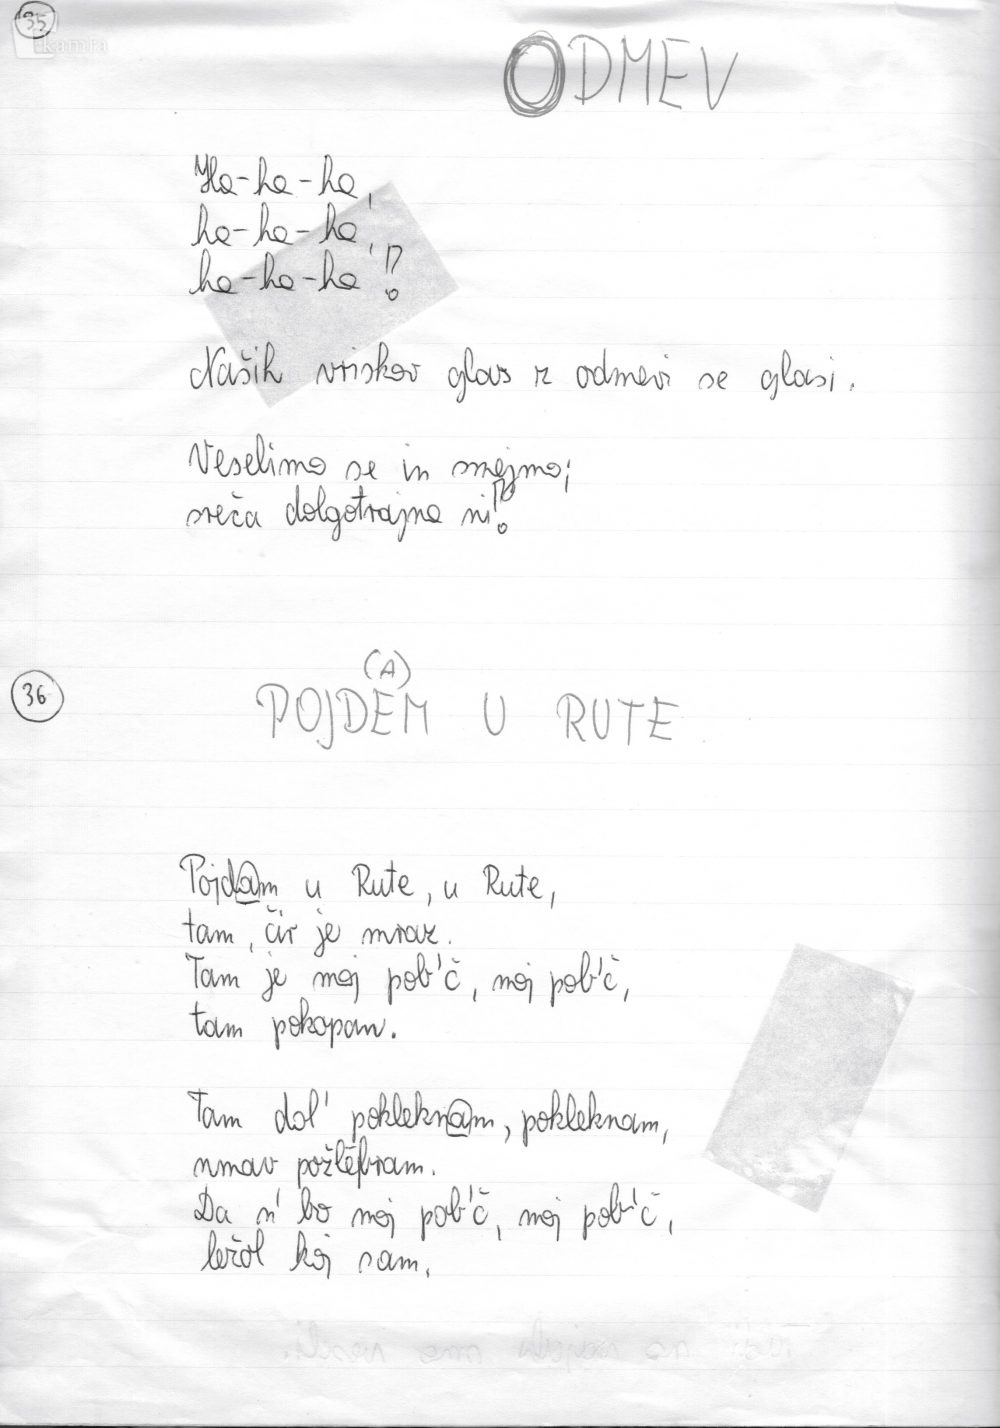 35
kamra
ODMEV
Ha-ha-ha,
ha-ha-ha,
ha-ha-ha!
Naših vriskov glas z odmevi se glasi.
Veselimo se in smejmo;
sreča dolgotrajna ni!
36
(A)
POJDEM U RUTE
Pojdam u Rute, u Rute,
tam, čir je mraz.
Tam je moj pob'č, moj pob'č,
tam pokopan.
Tam dol' pokleknam, pokleknam,
nmav požlėbram.
Da n' bo moj pob'č, moj pob'č,
ležol koj sam.